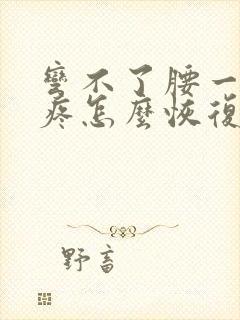 彎不了腰一
疼怎麼恢復
野畜